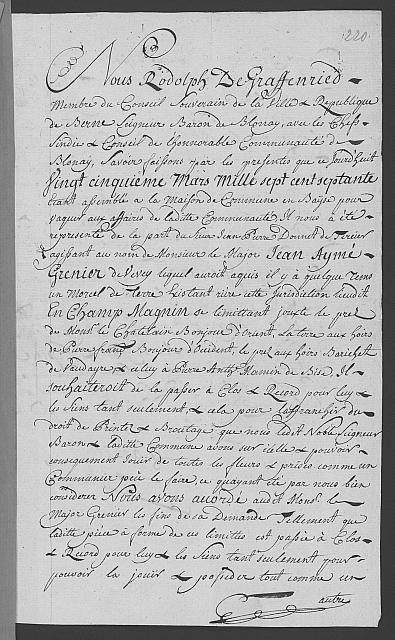 220.
Nous Rodolph De Graffenried
Membre du Conseil Souverain de la Ville & Republique
de Berne Seigneur Baron de Blonay, avec les Chefs
Sindic & Conseil de l'honnorable Communauté de
Blonay, Savoir faisons par les presentes que ce Jourd'huit
Vingt cinquieme Mars Mille sept cent septante
etant assemblé a la Maison de Commune en Bayse pour
vaquer aux affaires de laditte Communauté Il nous a été
representé de la part du Sieur Jean Pierre Donnet de Tercier
agissant au nom de Monsieur le Major Jean Aymé
Grenier de Vevey lequel auroit aquis il y à quelque tems
un Morcel de Terre Existant riére cette Jurisdiction lieudit
En Champ Magnin se limittant jouxte le pré
de Mons.r le Châtelain Bonjour d'orient, La terre aux hoirs
de Pierre franç.s Bonjour d'Occident, le pré aux hoirs
de Vaudaire & celuy à Pierre Anth.e Mamin de Bise, Il
souhaiteroit de la passer à Clos & Record pour luy &
les Siens tant seulement, & cela pour l'affranchir du
droit de Printer & Broutage que nous ledit Noble Seigneur
Baron & laditte Commune avons sur icelle & pouvoir
consequement Jouir de toutes les fleurs & prises comme un
Communier peut le faire, ce quayant été par nous bien
considerer Nous avons accordé audit Mons.r le
Major Grenier les fins de sa Demande Tellement que
laditte piéce à forme de ses limittes est passée à Clos
& Record pour luy & les Siens tant seulement pour
pouvoir la jouir & posséder tout comme un
autre